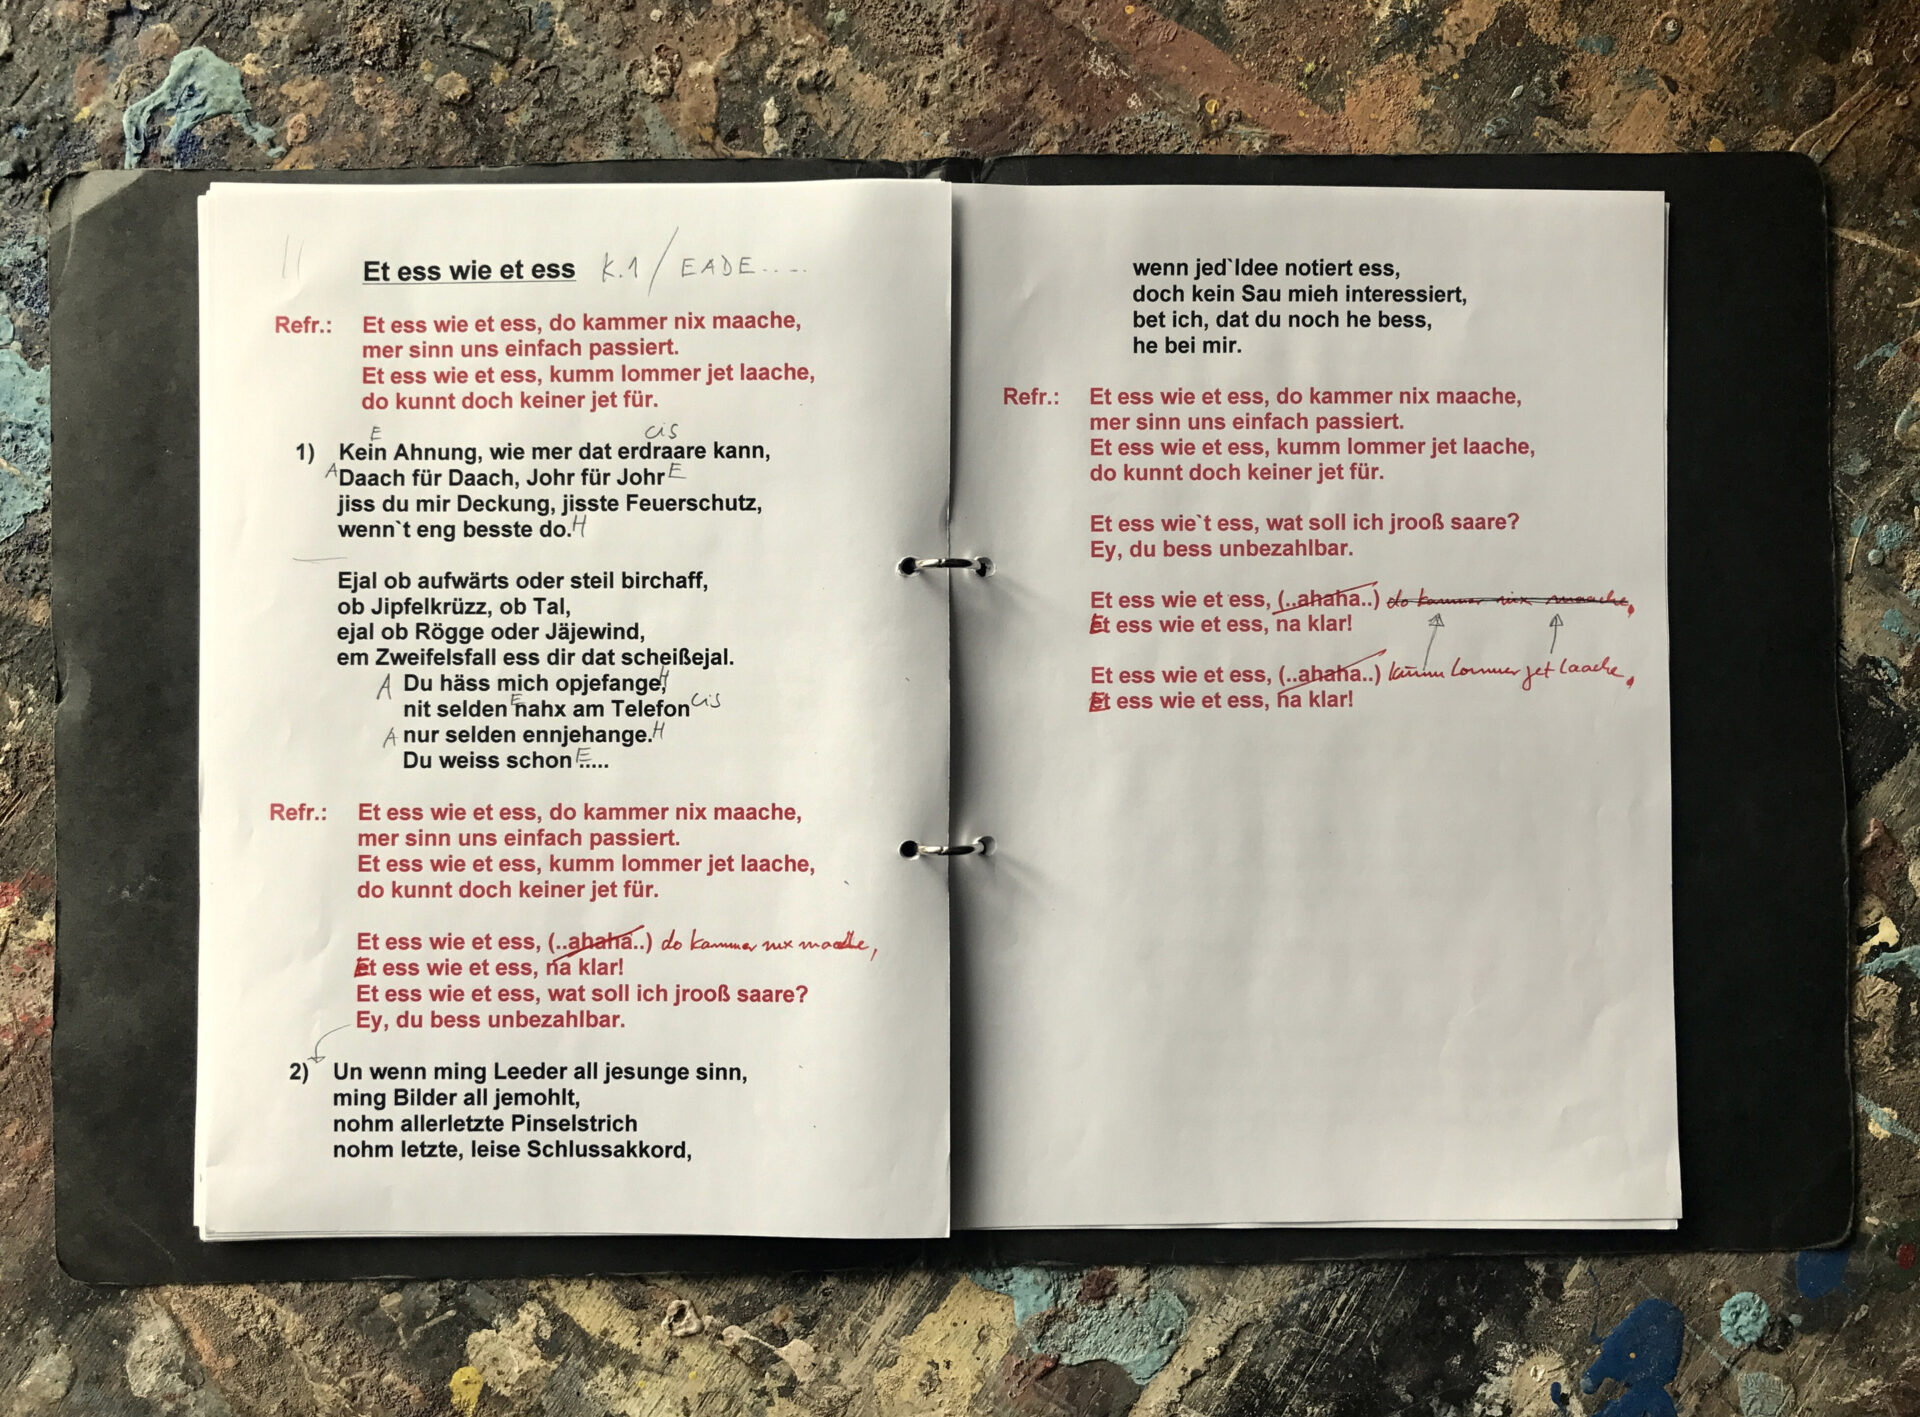 Et ess wie et ess K.1 / EADE.....
Refr.: Et ess wie et ess, do kammer nix maache,
mer sinn uns einfach passiert.
Et ess wie et ess, kumm lommer jet laache,
do kunnt doch keiner jet für.
E cis
1) Kein Ahnung, wie mer dat erdraare kann,
A Daach für Daach, Johr für Johr E
jiss du mir Deckung, jisste Feuerschutz,
wenn`t eng besste do. H
Ejal ob aufwärts oder steil birchaff,
ob Jipfelkrüzz, ob Tal,
ejal ob Rögge oder Jäjewind,
em Zweifelsfall ess dir dat scheißejal.
A Du häss mich opjefange, H
nit selden E nahx am Telefon cis
A nur selden ennjehange. H
Du weiss schon E .....
Refr.: Et ess wie et ess, do kammer nix maache,
mer sinn uns einfach passiert.
Et ess wie et ess, kumm lommer jet laache,
do kunnt doch keiner jet für.
Et ess wie et ess, (..ahaha..) do kammer nix maache,
Et ess wie et ess, na klar!
Et ess wie et ess, wat soll ich jrooß saare?
Ey, du bess unbezahlbar.
2) Un wenn ming Leeder all jesunge sinn,
ming Bilder all jemohlt,
nohm allerletzte Pinselstrich
nohm letzte, leise Schlussakkord,
wenn jed`Idee notiert ess,
doch kein Sau mieh interessiert,
bet ich, dat du noch he bess,
he bei mir.
Refr.: Et ess wie et ess, do kammer nix maache,
mer sinn uns einfach passiert.
Et ess wie et ess, kumm lommer jet laache,
do kunnt doch keiner jet für.
Et ess wie`t ess, wat soll ich jrooß saare?
Ey, du bess unbezahlbar.
Et ess wie et ess, (..ahaha..) do kammer nix maache,
Et ess wie et ess, na klar!
Et ess wie et ess, (..ahaha..) kumm lommer jet laache,
Et ess wie et ess, na klar!